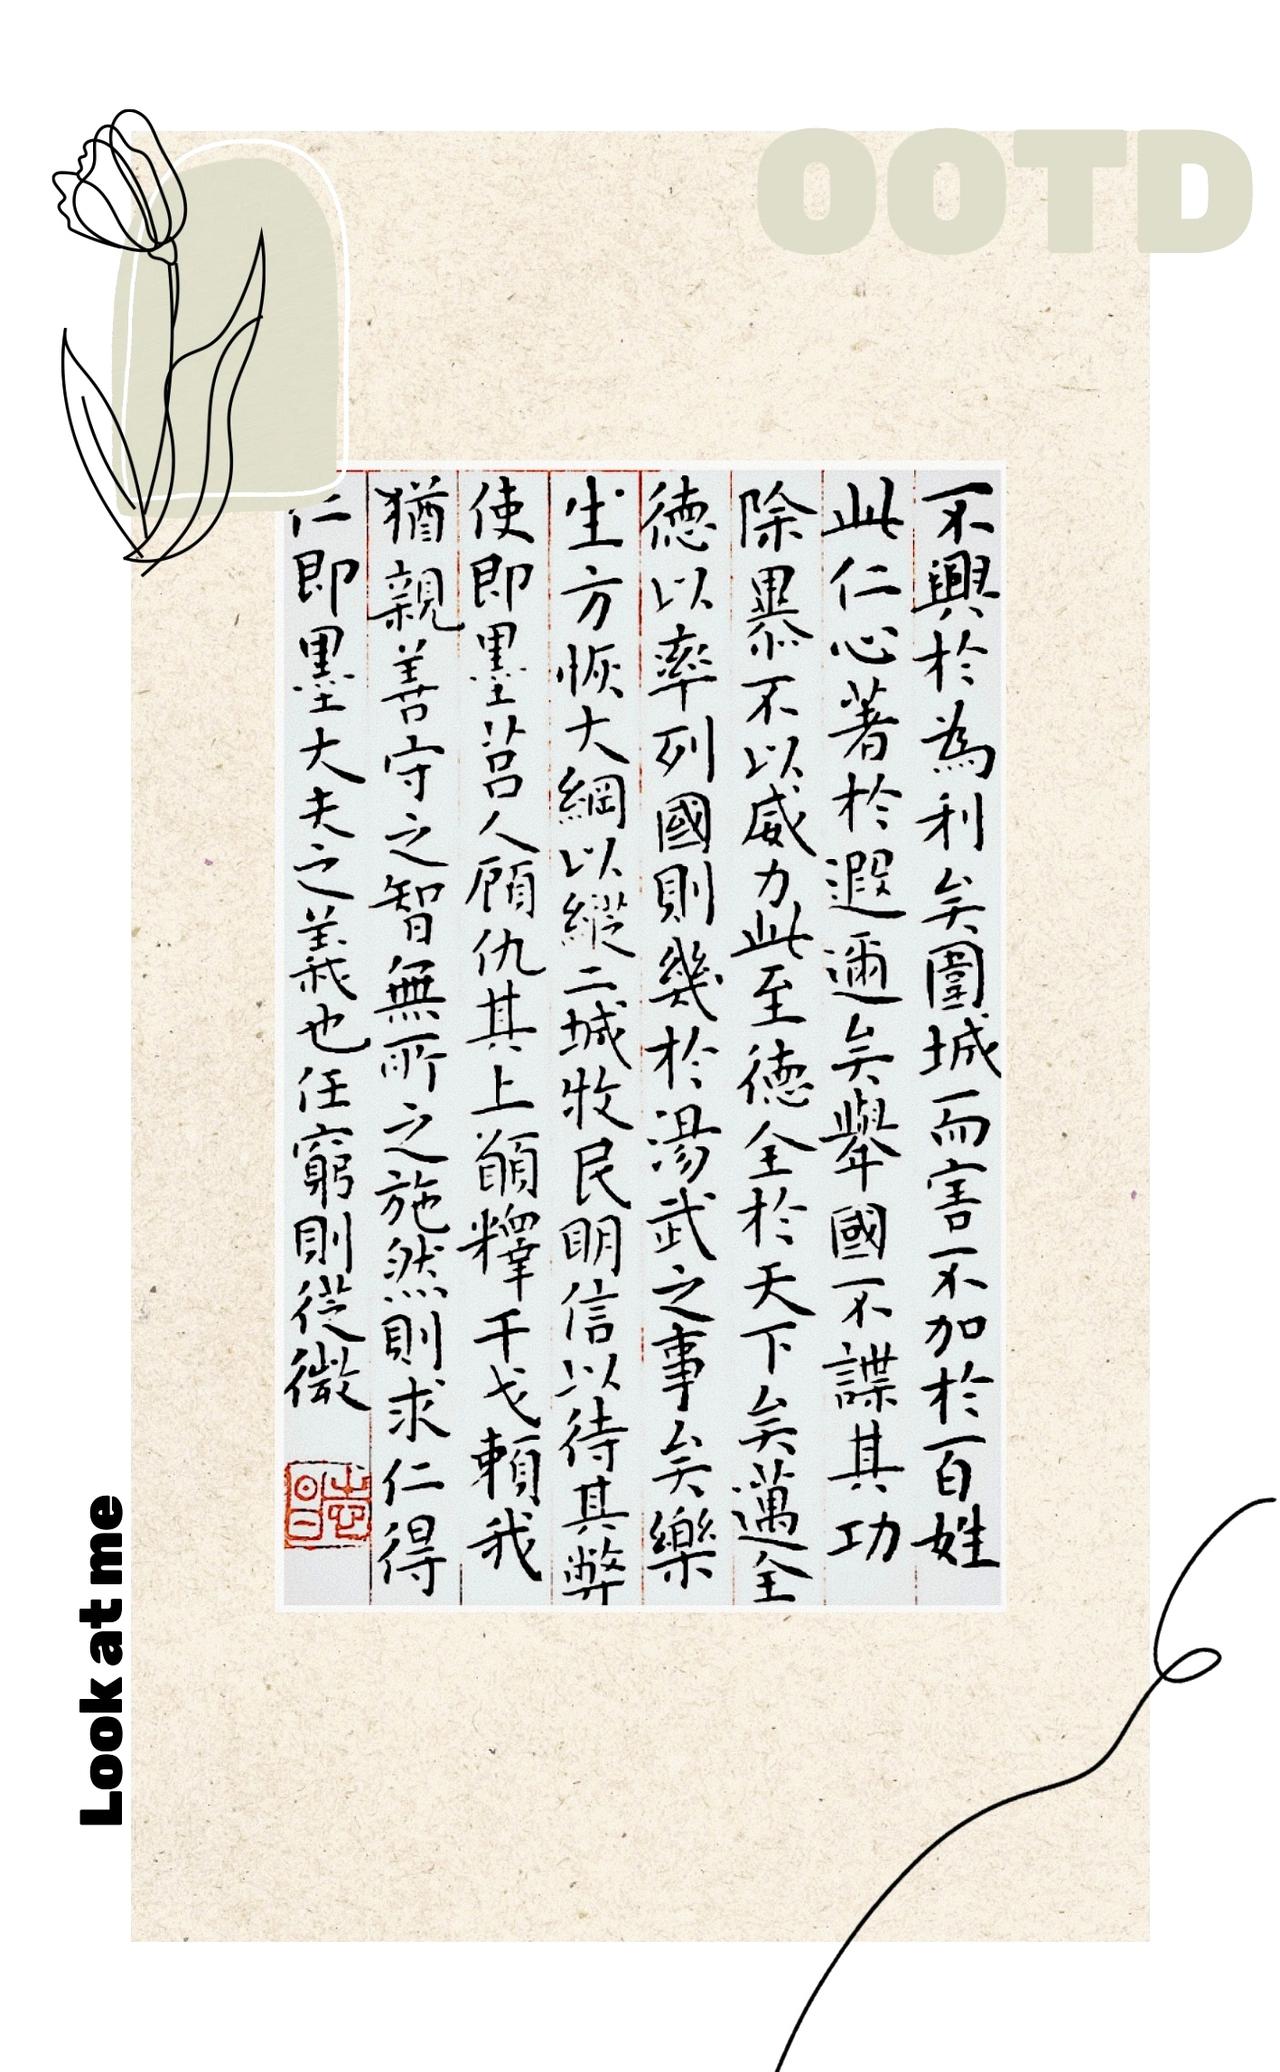 OOTD
不興於為利矣圍城而害不加於百姓
此仁心著於遐邇矣舉國不謀其功
除暴不以威力此至德全於天下矣邁全
德以率列國則幾於湯武之事矣樂
生方恢大綱以縱二城牧民明信以待其弊
使即墨莒人顧仇其上願釋干戈賴我
猶親善守之智無所之施然則求仁得
仁即墨大夫之義也任窮則從微
Look at me